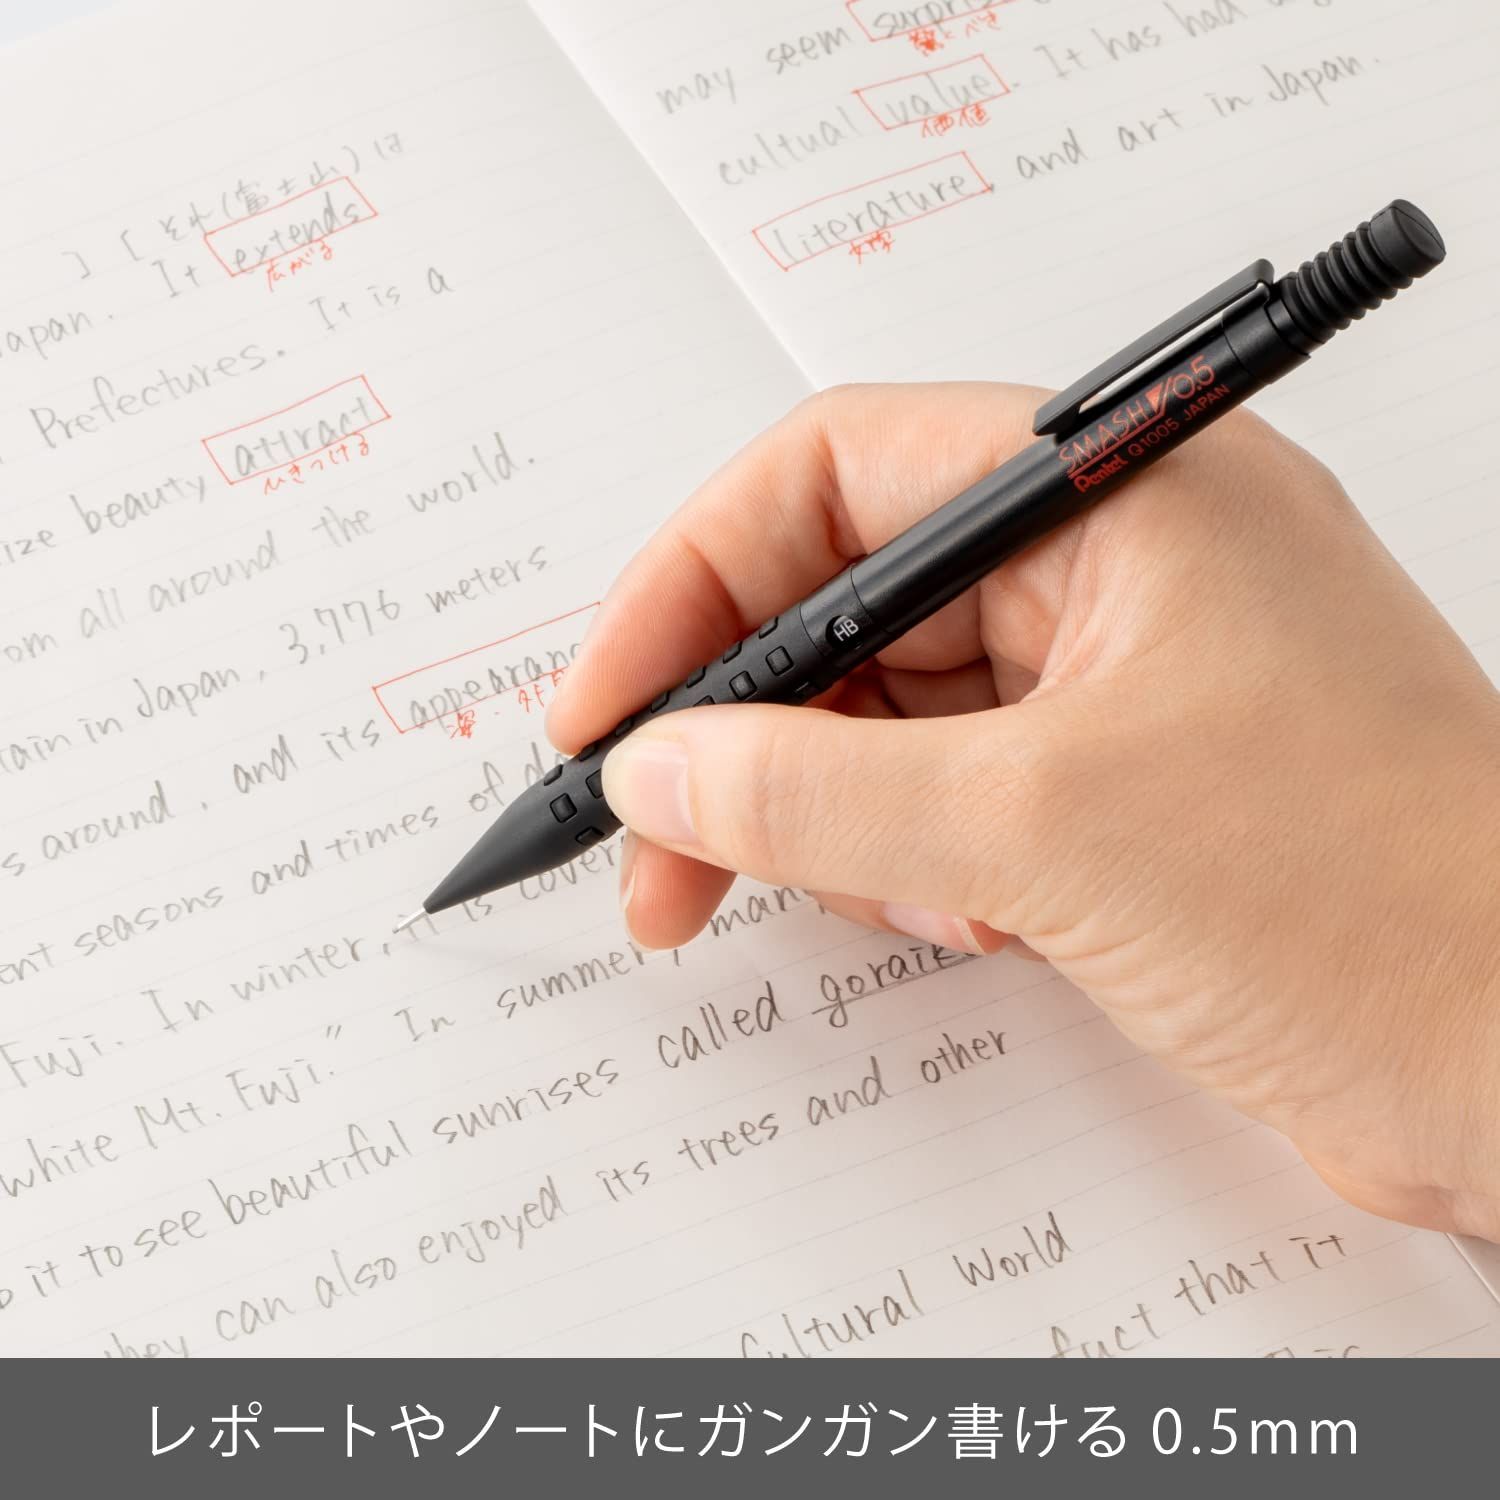 ] [ それ(富士山)は
apan. It extends
広がる
Prefectures. It is a
ize beauty attract
ひきつける
om all around the world.
tain in Japan, 3,776 meters
s around, and its appearanc
姿・外
ent seasons and times of da
Fuji. In winter, it is cover
white Mt. Fuji." In summer, man
o it to see beautiful sunrises called goraik
they can also enjoyed its trees and other
may seem surpris
驚くべき
cultual value. It has had
価値
literature, and art in Japan.
文学
Cultural World
fact that it
SMASH 0.5
Pentel Q1005 JAPAN
HB
レポートやノートにガンガン書ける 0.5mm